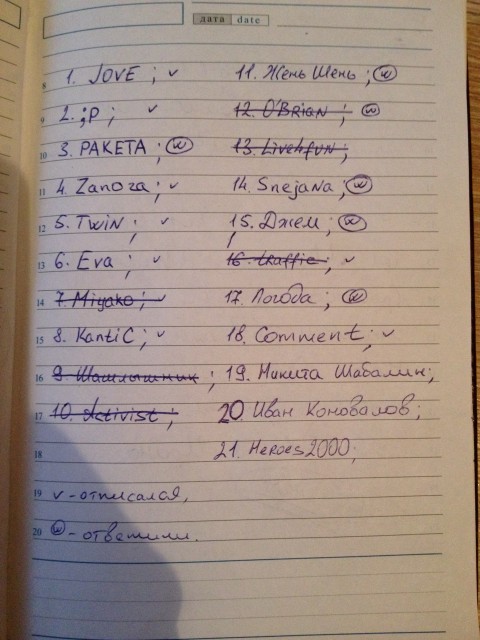 дата date
8 1. JOVE ; ✓ 11. Жень Шень ; ⓦ
9 2. ;P ; ✓ 12. O'BRiAN ; ⓦ
10 3. РАКЕТА ; ⓦ 13. Live4fun ;
11 4. Zanoza ; ✓ 14. Snejana ; ⓦ
12 5. TwiN ; ✓ 15. Джем ; ⓦ
13 6. Eva ; ✓ 16. traffic ; ✓
14 7. Miyako ; ✓ 17. Погода ; ⓦ
15 8. KantiC ; ✓ 18. Comment ; ✓
16 9. Шашлышник ; 19. Никита Шабалин ;
17 10. Activist ; 20. Иван Коновалов ;
18 21. Heroes2000 ;
19 ✓ - отписался,
20 ⓦ - ответили.